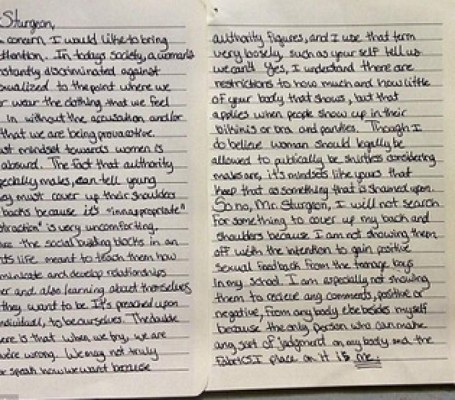 Sturgeon,
concern, I would like to bring
attention. In todays society, a woman's
constantly discriminated against
sexualized to the point where we
or wear the clothing that we feel
in without the accusation and/or
that we are being provocative.
mindset towards women is
absurd. The fact that authority
especially males, can tell young
they must cover up their shoulders
backs because it's "innapropriate"
"distraction" is very uncomforting.
are the social building blocks in an
life meant to teach them how
communicate and develop relationships
and also learning about themselves
they want to be. It's preached upon
individual, to be ourselves. The
here is that when we try, we are
we're wrong. We may not truly
or speak how we want because
authority figures, and I use that term
very loosely, such as your self tell us
we can't. Yes, I understand there are
restrictions to how much and how little
of your body that shows, but that
applies when people show up in their
bikinis or bra and panties. Though I
do believe woman should legally be
allowed to publically be shirtless considering
males are, it's mindsets like yours that
keep that as something that is shamed upon.
So no, Mr. Sturgeon, I will not search
for something to cover up my back and
shoulders because I am not showing them
off with the intention to gain positive
sexual feedback from the teenage boys
in my school. I am especially not showing
them to recieve any comments, positive or
negative, from any body else besides myself
because the only person who can make
any sort of judgment on my body and the
fabrics I place on it is me.